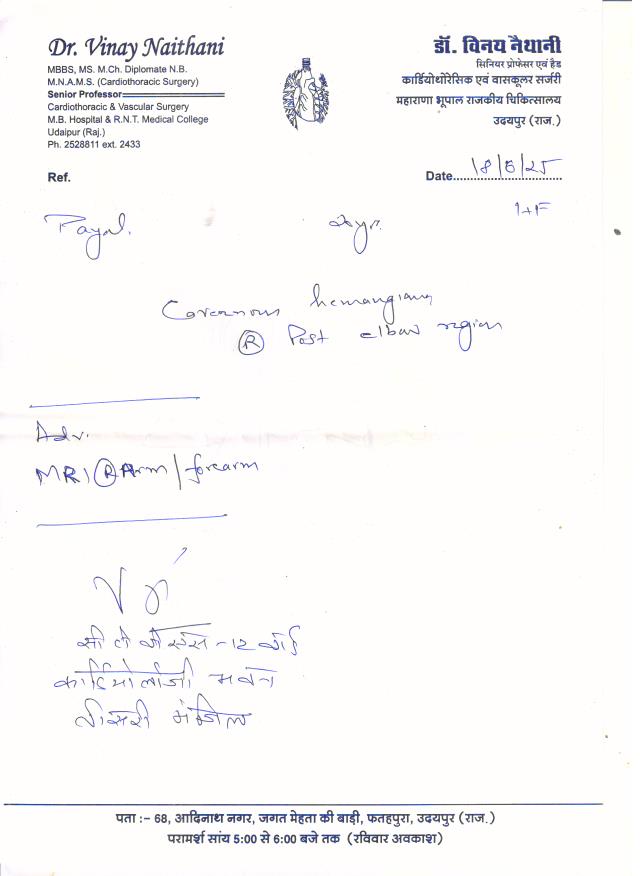 Dr. Vinay Naithani
MBBS, MS. M.Ch. Diplomate N.B.
M.N.A.M.S. (Cardiothoracic Surgery)
Senior Professor
Cardiothoracic & Vascular Surgery
M.B. Hospital & R.N.T. Medical College
Udaipur (Raj.)
Ph. 2528811 ext. 2433
डॉ. विनय नैथानी
सिनियर प्रोफेसर एवं हैड
कार्डियोथोरेसिक एवं वासकूलर सर्जरी
महाराणा भूपाल राजकीय चिकित्सालय
उदयपुर (राज.)
Ref.
Date 18/6/25
Payal.
Cavernous hemangioma
R Post elbow region
Adv.
MRI R Arm / forearm
12 वार्ड
कार्डियोलोजी भवन
तीसरी मंजिल
पता :– 68, आदिनाथ नगर, जगत मेहता की बाड़ी, फतहपुरा, उदयपुर (राज.)
परामर्श सांय 5:00 से 6:00 बजे तक (रविवार अवकाश)